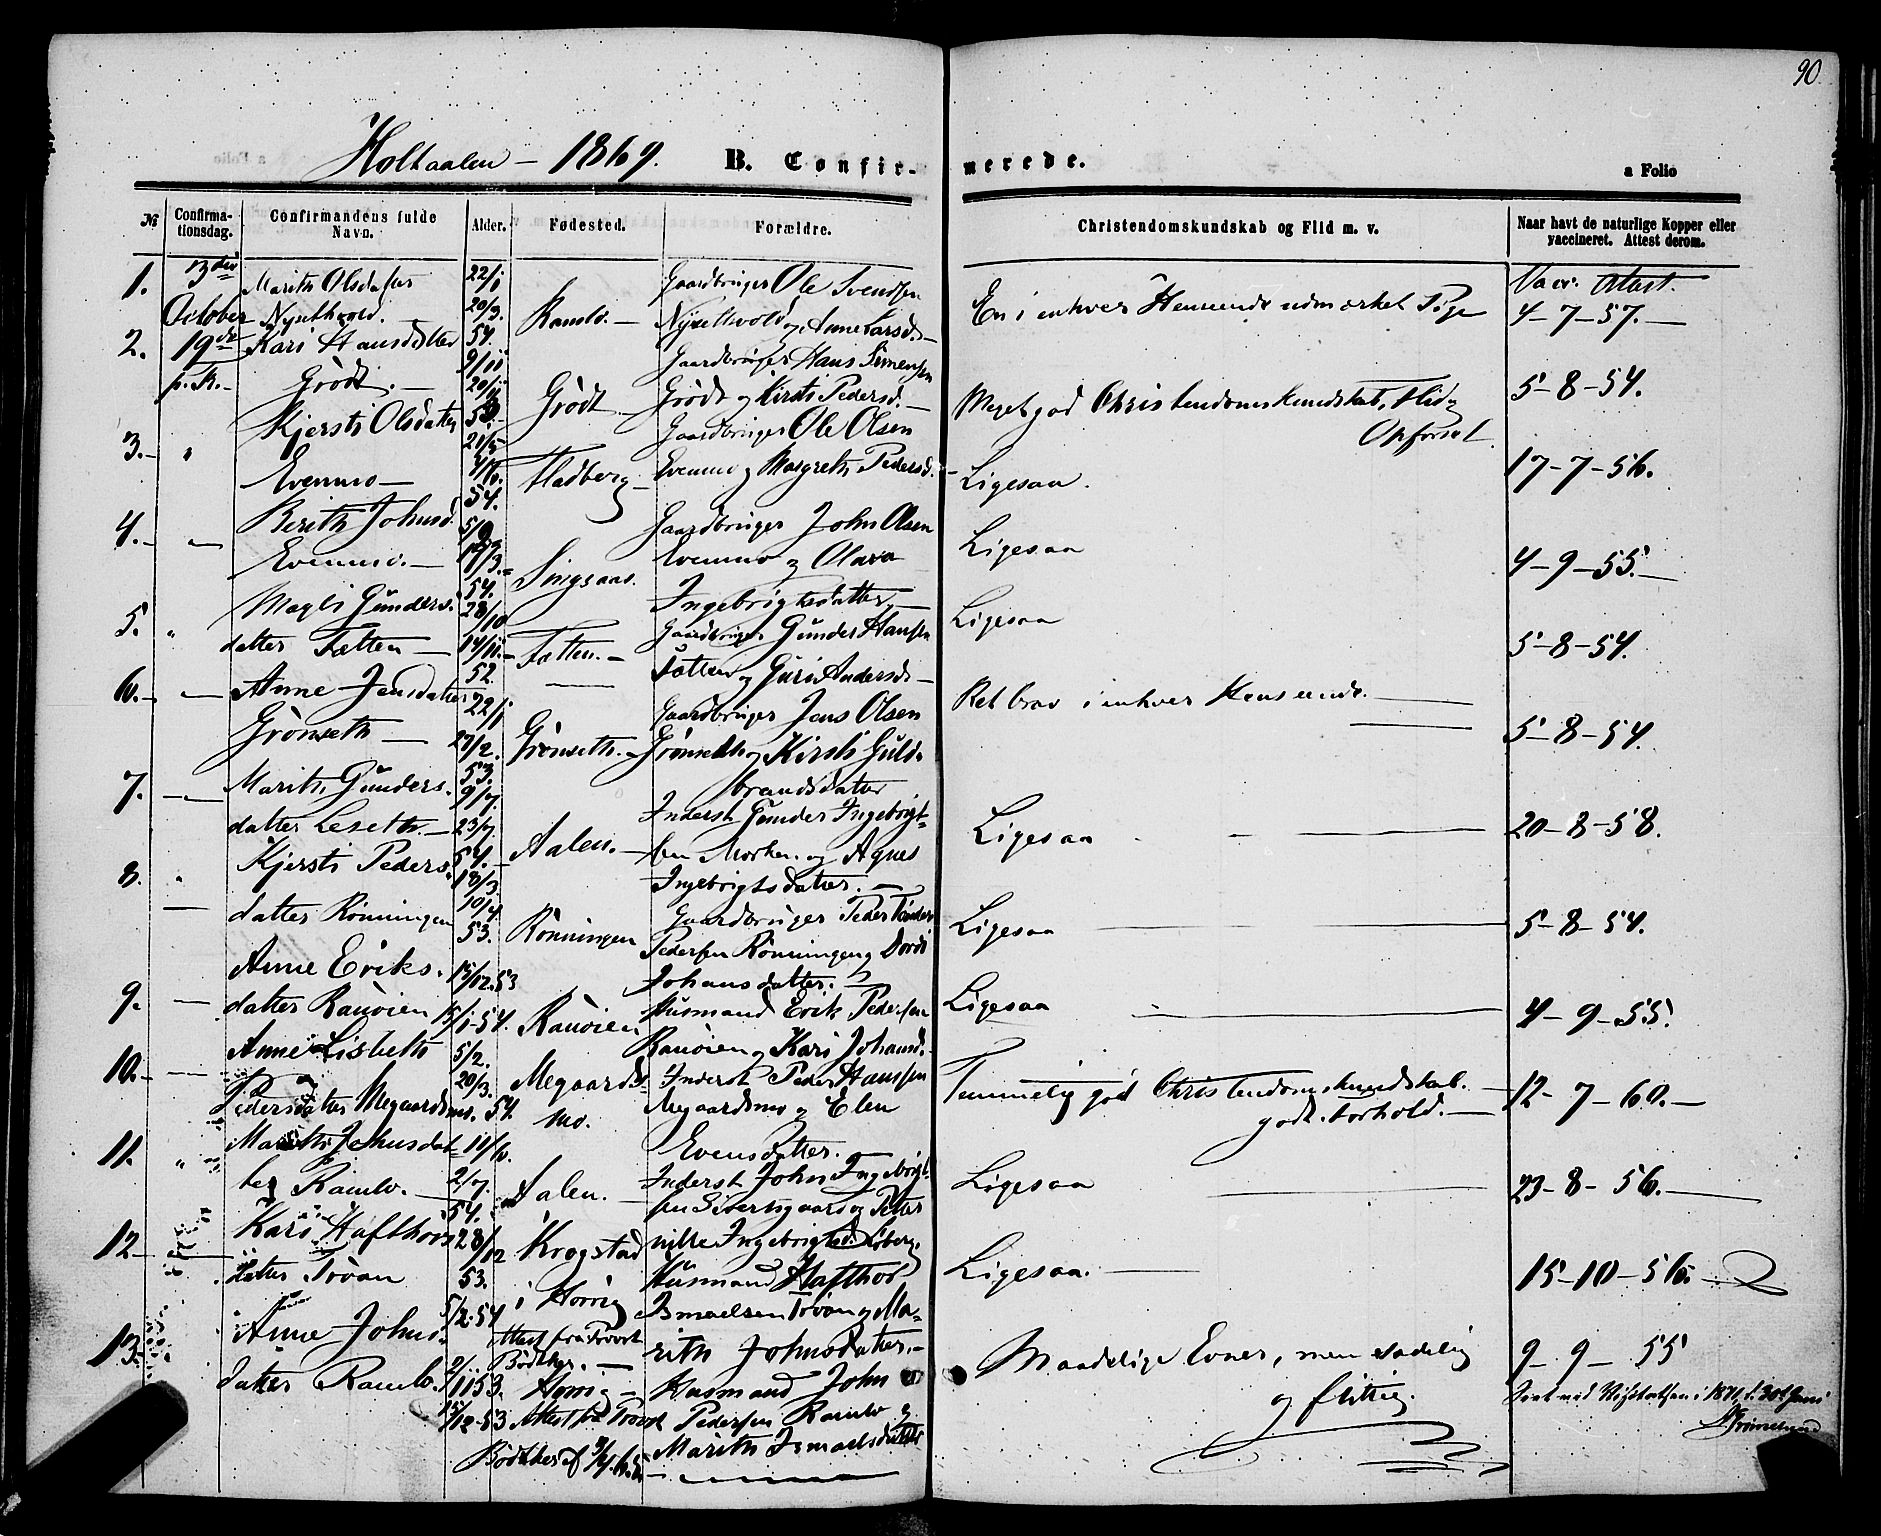 90
Holtaalen – 1869. B. Confirmerede.
a Folio
№ Confirmationsdag. Confirmandens fulde Navn. Alder. Fødested. Forældre. Christendomskundskab og Flid m. v. Naar havt de naturlige Kopper eller vaccineret. Attest derom.
1. 3die Marith Olsdatter 22/1 Gaardbruger Ole Svendsen Vacc. Attest.
October Nysethvold. 20/3. Ramlo. – Nysethvold og Anne Larsd. – En i enhver Henseende udmærket Pige 4–7–57. –
2. 19de Kari Hansdatter 54. Gaardbruger Hans Simensen
p. Tr. – Grödt. – 9/11 20/11 53. Grödt Grödt og Kirsti Pedersd. – Meget god Christendomskundskab, Flid og Opførsel 5–8–54.
3. – " Kjersti Olsdatter Gaardbruger Ole Olsen
Evenmo – 54. Hladberg – Evenmo og Margreth Pedersd. – Ligesaa. 17–7–56.
4. – – Berith Johnsd. Gaardbruger John Olsen
Evenmo. – 54. Singsaas. Evenmo og Olava Ligesaa 4–9–55. –
Ingebrigtsdatter –
5. " Magli Gunders- 28/10 Gaardbruger Gunder Hansen Ligesaa
datter Tætten – 14/11. – 52. Tætten. – Tætten og Guri Andersd – 5–8–54.
6. – – Anne Jensdatter 22/1 Gaardbruger Jens Olsen Ret brav i enhver Henseende. –
Grönseth – 27/2. 53. Grönseth. – Grönseth og Kirsti Guld- 5–8–54.
brandsdatter
7. – Marith Gunders- 9/7. Inderst Gunder Ingebrigt-
datter Leseth. – 23/7. 54. Aalen. – sen Morken og Agnes Ligesaa – 20–8–58.
Ingebrigtsdatter. –
8. " Kjersti Peders- 18/3. Gaardbruger Peder
– datter Rönningen 10/4 53. Rönningen Pedersen Rönningen og Dordi Ligesaa – 5–8–54.
Johansdatter. –
9. – Anne Eriks- 15/12. 53 Husmand Erik Pedersen
datter Rauöien 15/1–54. Rauöien Rauöien og Kari Johansd. Ligesaa – 4–9–55.
10. – – Anne Lisbeth 5/2. Megaards- Inderst Peder Hansen Temmelig god Christendomskundskab. –
Pedersdatter Megaardsmo. 20/3. 54. mo. Megaardsmo og Elen godt Forhold. – 12–7–60. –
Evensdatter.
11. " – Marith Johnsdat- 11/6. Inderst John Ingebrigt-
ter Ramlo. – 2/7. 54. Aalen. – sen Sivertsgaard og Peter- Ligesaa – 23–8–56. –
nille Ingebrigtsd. Løberg.
12 – – Kari Hafthors- 28/12 53. Krogstad Husmand Hafthor Ligesaa. – 15–10–56. –
datter Trøan 5/2. 54 i Horrig Ismaelsen Trøan og Ma-
Attest fra Provst Bödtker. – rith Johnsdatter. –
13. – Anne Johns- 2/11 53. Horrig – Husmand John Maadelige Evner, men sædelig 9–9–55
datter Ramlo. 15/12–53 Attest fra Provst Pedersen Ramlo og og flittig.
Bödtker af Marith Ismaelsdatter